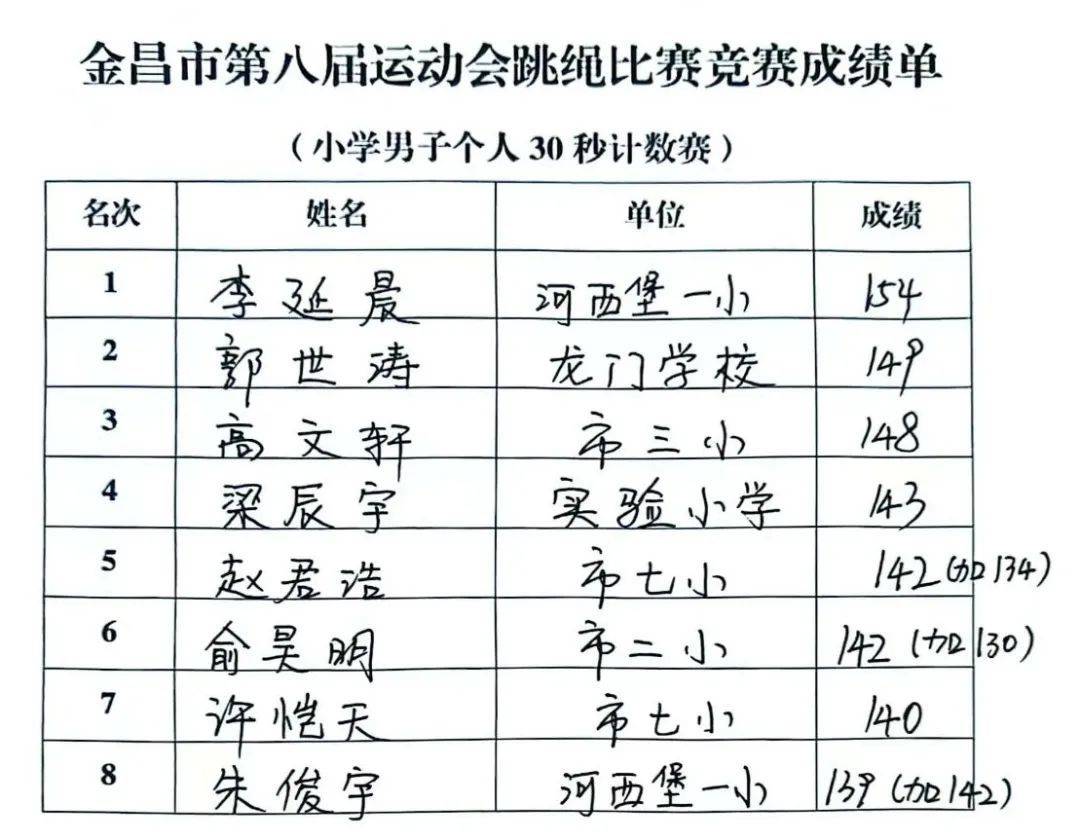 金昌市第八届运动会跳绳比赛竞赛成绩单
（小学男子个人30秒计数赛）
名次 姓名 单位 成绩
1 李延晨 河西堡一小 154
2 郭世涛 龙门学校 149
3 高文轩 市三小 148
4 梁辰宇 实验小学 143
5 赵君浩 市七小 142（加134）
6 俞昊明 市二小 142（加130）
7 许恺天 市七小 140
8 朱俊宇 河西堡一小 139（加142）